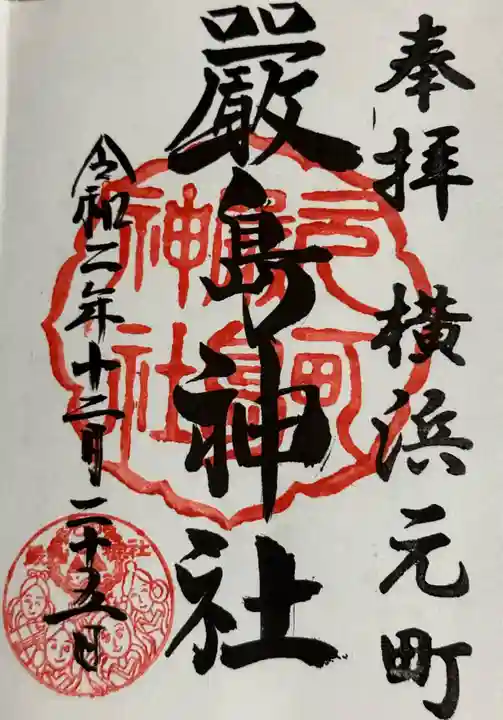 奉拝 横浜元町
厳島神社
令和二年十二月二十五日
元町
厳島
神社